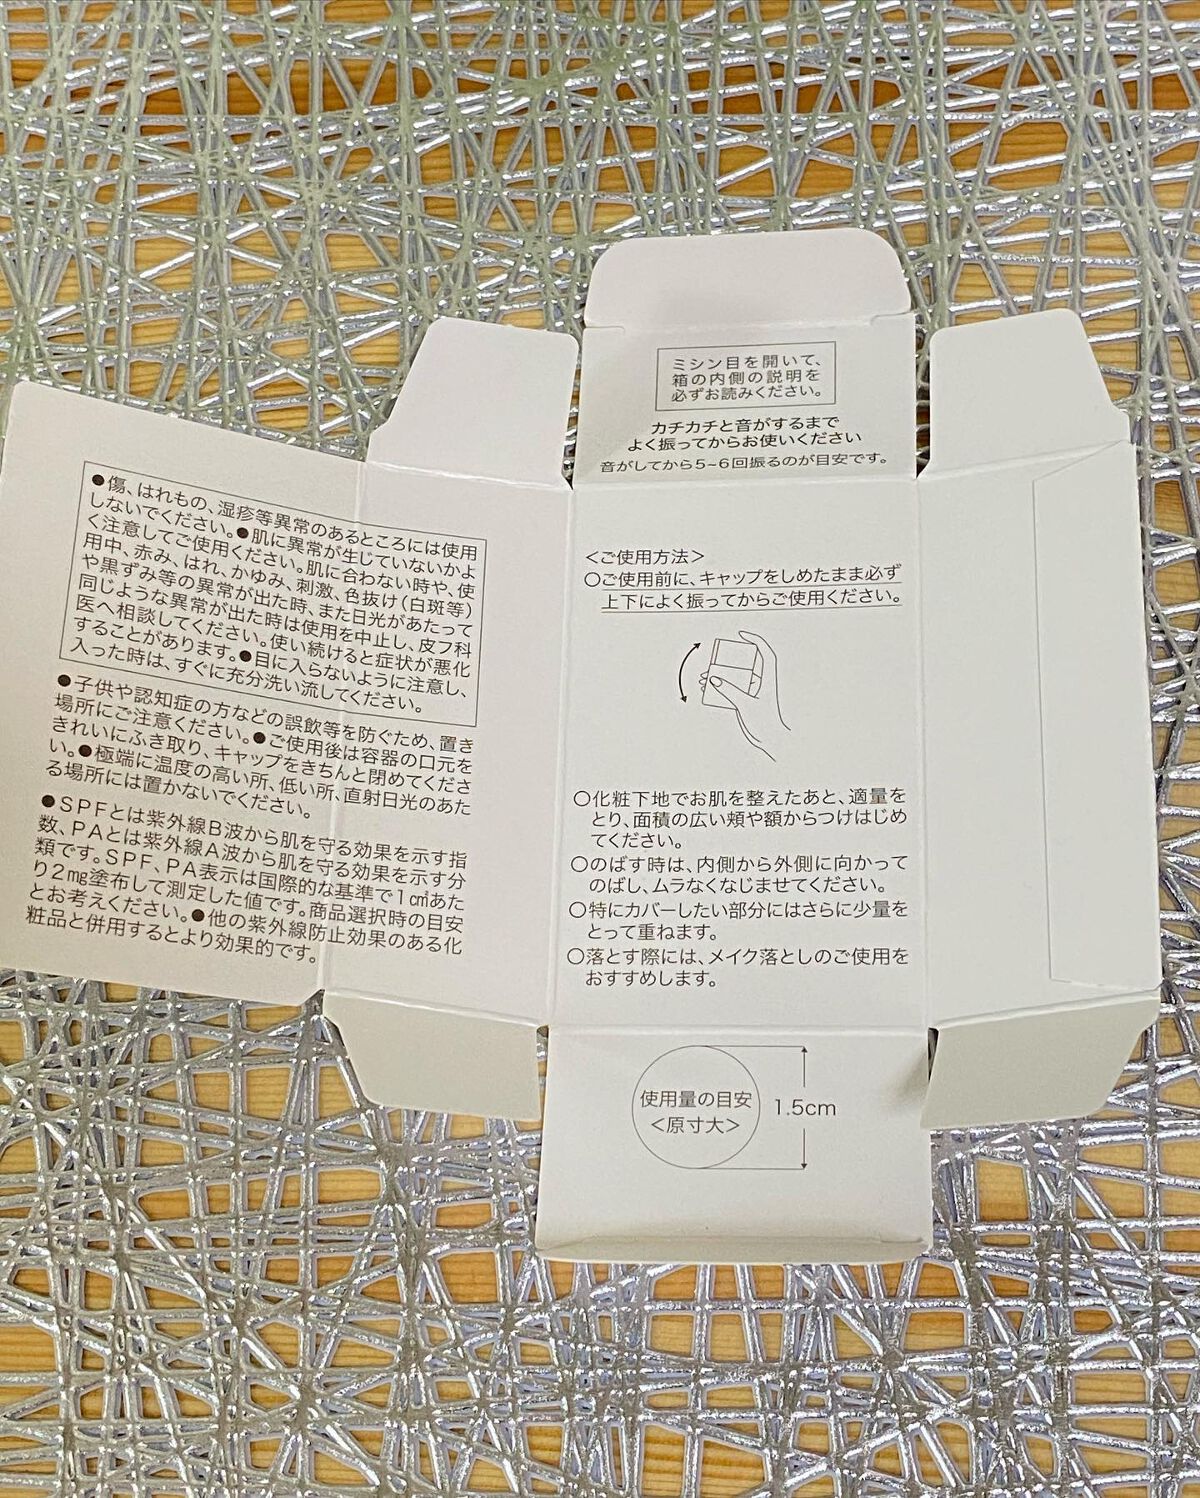 ミシン目を開いて、
箱の内側の説明を
必ずお読みください。
カチカチと音がするまで
よく振ってからお使いください
音がしてから5~6回振るのが目安です。
●傷、はれもの、湿疹等異常のあるところには使用
しないでください。●肌に異常が生じていないかよ
く注意してご使用ください。肌に合わない時や、使
用中、赤み、はれ、かゆみ、刺激、色抜け(白斑等)
や黒ずみ等の異常が出た時、また日光があたって
同じような異常が出た時は使用を中止し、皮フ科
医へ相談してください。使い続けると症状が悪化
することがあります。●目に入らないように注意し、
入った時は、すぐに充分洗い流してください。
●子供や認知症の方などの誤飲等を防ぐため、置き
場所にご注意ください。●ご使用後は容器の口元を
きれいにふき取り、キャップをきちんと閉めてくださ
い。●極端に温度の高い所、低い所、直射日光のあた
る場所には置かないでください。
●SPFとは紫外線B波から肌を守る効果を示す指
数、PAとは紫外線A波から肌を守る効果を示す分
類です。SPF、PA表示は国際的な基準で1㎠あた
り2mg塗布して測定した値です。商品選択時の目安
とお考えください。●他の紫外線防止効果のある化
粧品と併用するとより効果的です。
<ご使用方法>
○ご使用前に、キャップをしめたまま必ず
上下によく振ってからご使用ください。
○化粧下地でお肌を整えたあと、適量を
とり、面積の広い頬や額からつけはじめ
てください。
○のばす時は、内側から外側に向かって
のばし、ムラなくなじませてください。
○特にカバーしたい部分にはさらに少量を
とって重ねます。
○落とす際には、メイク落としのご使用を
おすすめします。
使用量の目安
<原寸大>
1.5cm